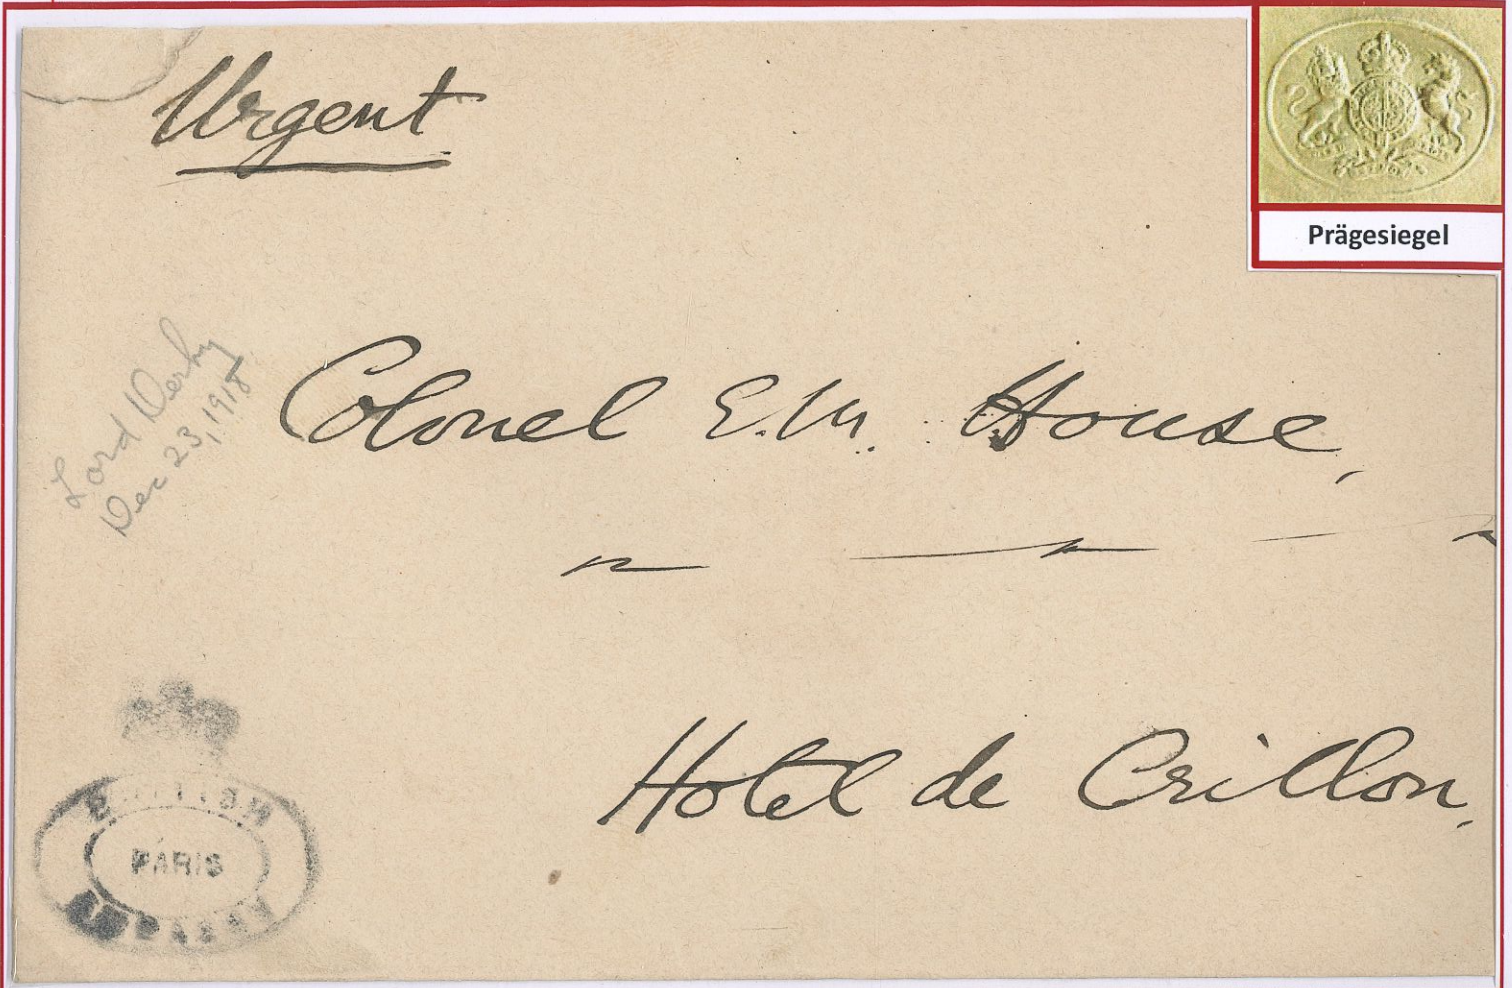 Urgent
Prägesiegel
Lord Derby
Dec 23, 1918
Colonel E. M. House,
Hotel de Crillon,
BRITISH
PARIS
EMBASSY